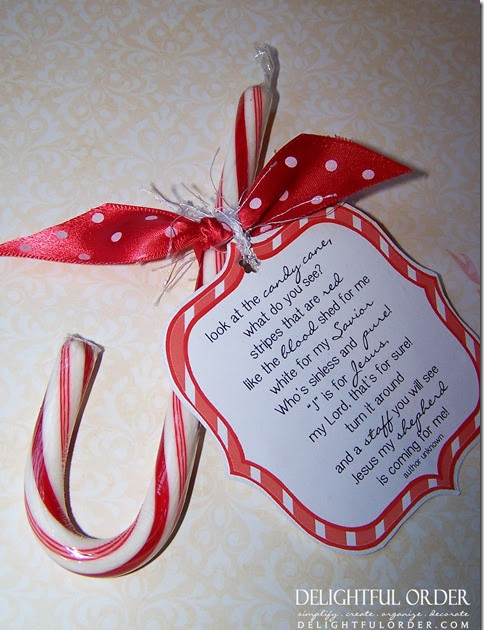 look at the candy cane,
what do you see?
stripes that are red
like the blood shed for me
white for my Savior
Who's sinless and pure!
"J" is for Jesus,
my Lord, that's for sure!
turn it around
and a staff you will see
Jesus my shepherd
is coming for me!
author unknown
DELIGHTFUL ORDER
simplify . create . organize . decorate
DELIGHTFULORDER.COM